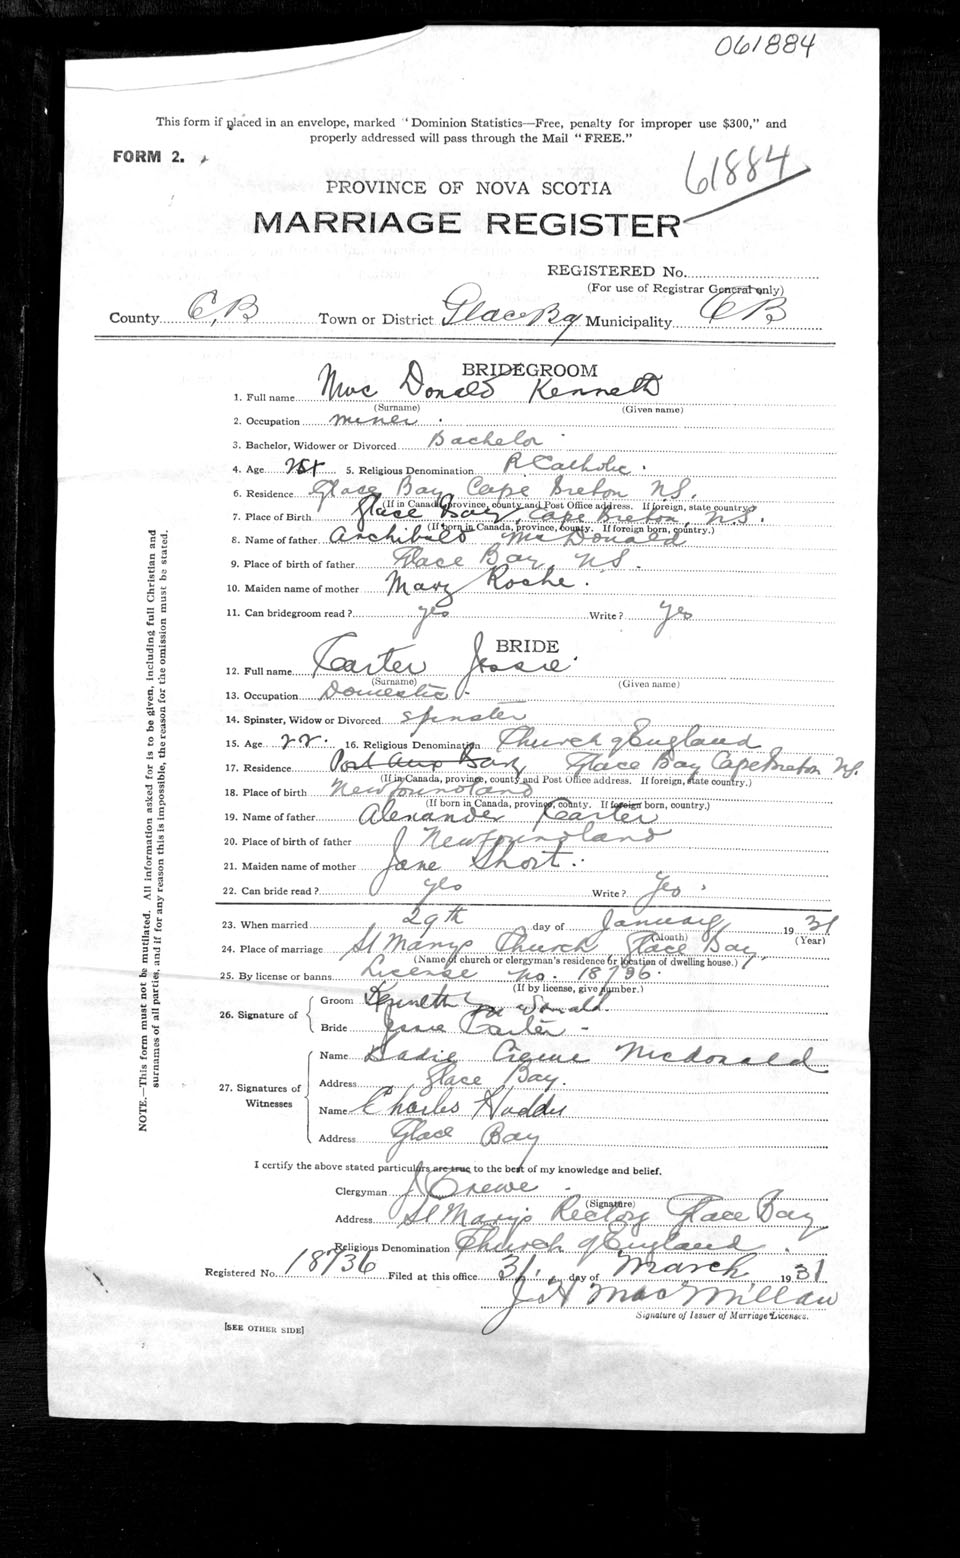 061884
This form if placed in an envelope, marked "Dominion Statistics—Free, penalty for improper use $300," and
properly addressed will pass through the Mail "FREE."
FORM 2.
61884
PROVINCE OF NOVA SCOTIA
MARRIAGE REGISTER
REGISTERED No.
(For use of Registrar General only)
County C,B Town or District Glace Bay Municipality CB
BRIDEGROOM
1. Full name Mac Donald Kenneth
(Surname) (Given name)
2. Occupation miner
3. Bachelor, Widower or Divorced Bachelor
4. Age 5. Religious Denomination R Catholic
6. Residence Glace Bay Cape Breton N.S.
(If in Canada, province, county and Post Office address. If foreign, state country.)
7. Place of Birth Glace Bay, Cape Breton, N.S.
(If born in Canada, province, county. If foreign born, country.)
8. Name of father Archibald McDonald
9. Place of birth of father Glace Bay N.S.
10. Maiden name of mother Mary Roche.
11. Can bridegroom read? yes Write? yes
BRIDE
12. Full name Karter Jessie
(Surname) (Given name)
13. Occupation Domestic
14. Spinster, Widow or Divorced spinster
15. Age 22. 16. Religious Denomination Church of England
17. Residence Port Aux Bay Glace Bay Cape Breton N.S.
(If in Canada, province, county and Post Office address. If foreign, state country.)
18. Place of birth Newfoundland
(If born in Canada, province, county. If foreign born, country.)
19. Name of father Alexander Karter
20. Place of birth of father Newfoundland
21. Maiden name of mother Jane Short
22. Can bride read? yes Write? Yes
23. When married 29th day of January 1931
(Month) (Year)
24. Place of marriage St Marys Church Glace Bay
(Name of church or clergyman's residence or location of dwelling house.)
25. By license or banns License no. 18736
(If by license, give number.)
26. Signature of
Groom Kenneth Mc Donald.
Bride Jessie Carter
27. Signatures of Witnesses
Name Sadie McDonald
Address Glace Bay.
Name Charles
Address Glace Bay
I certify the above stated particulars are true to the best of my knowledge and belief.
Clergyman J Crewe
(Signature)
Address St Marys Rectory Glace Bay
Religious Denomination Church of England
Registered No. 18736 Filed at this office 31. day of March 1931
J H MacMillan
Signature of Issuer of Marriage Licenses.
[SEE OTHER SIDE]
NOTE.—This form must not be mutilated. All information asked for is to be given, including full Christian and
surnames of all parties, and if for any reason this is impossible, the reason for the omission must be stated.